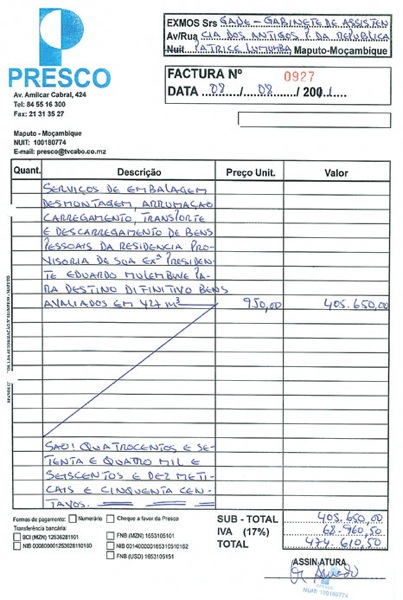 PRESCO
Av. Amílcar Cabral, 424
Tel: 84 55 16 300
Fax: 21 31 35 27
Maputo - Moçambique
NUIT: 100180774
E-mail: presco@tvcabo.co.mz
EXMOS Srs GADE - GABINETE DE ASSISTEN
Av/Rua CIA DOS ANTIGOS P. DA REPUBLICA
Nuit PATRICE LUMUMBA, Maputo-Moçambique
FACTURA Nº 0927
DATA 08 / 08 / 2001
Quant. Descrição Preço Unit. Valor
SERVIÇOS DE EMBALAGEM
DESMONTAGEM, ARRUMAÇAO
CARREGAMENTO, TRANSPORTE
E DESCARREGAMENTO DE BENS
PESSOAIS DA RESIDENCIA PRO-
VISORIA DE SUA EXª PRESIDEN-
TE EDUARDO MULEMBWE PA-
RA DESTINO DIFINITIVO BENS
AVALIADOS EM 427 m³ 950,00 405.650,00
SAO! QUATROCENTOS E SE-
TENTA E QUATRO MIL E
SEISCENTOS E DEZ METI-
CAIS E CINQUENTA CEN-
TAVOS.
Formas de pagamento: Numerário Cheque a favor da Presco
Transferência bancária:
BCI (MZN) 12536281101
FNB (MZN) 1653105101
NIB 000800001253628110180
NIB 001400001653105101182
FNB (USD) 1653105151
SUB - TOTAL 405.650,00
IVA (17%) 68.960,50
TOTAL 474.610,50
ASSINATURA
PRESCO
NUIT: 100180774